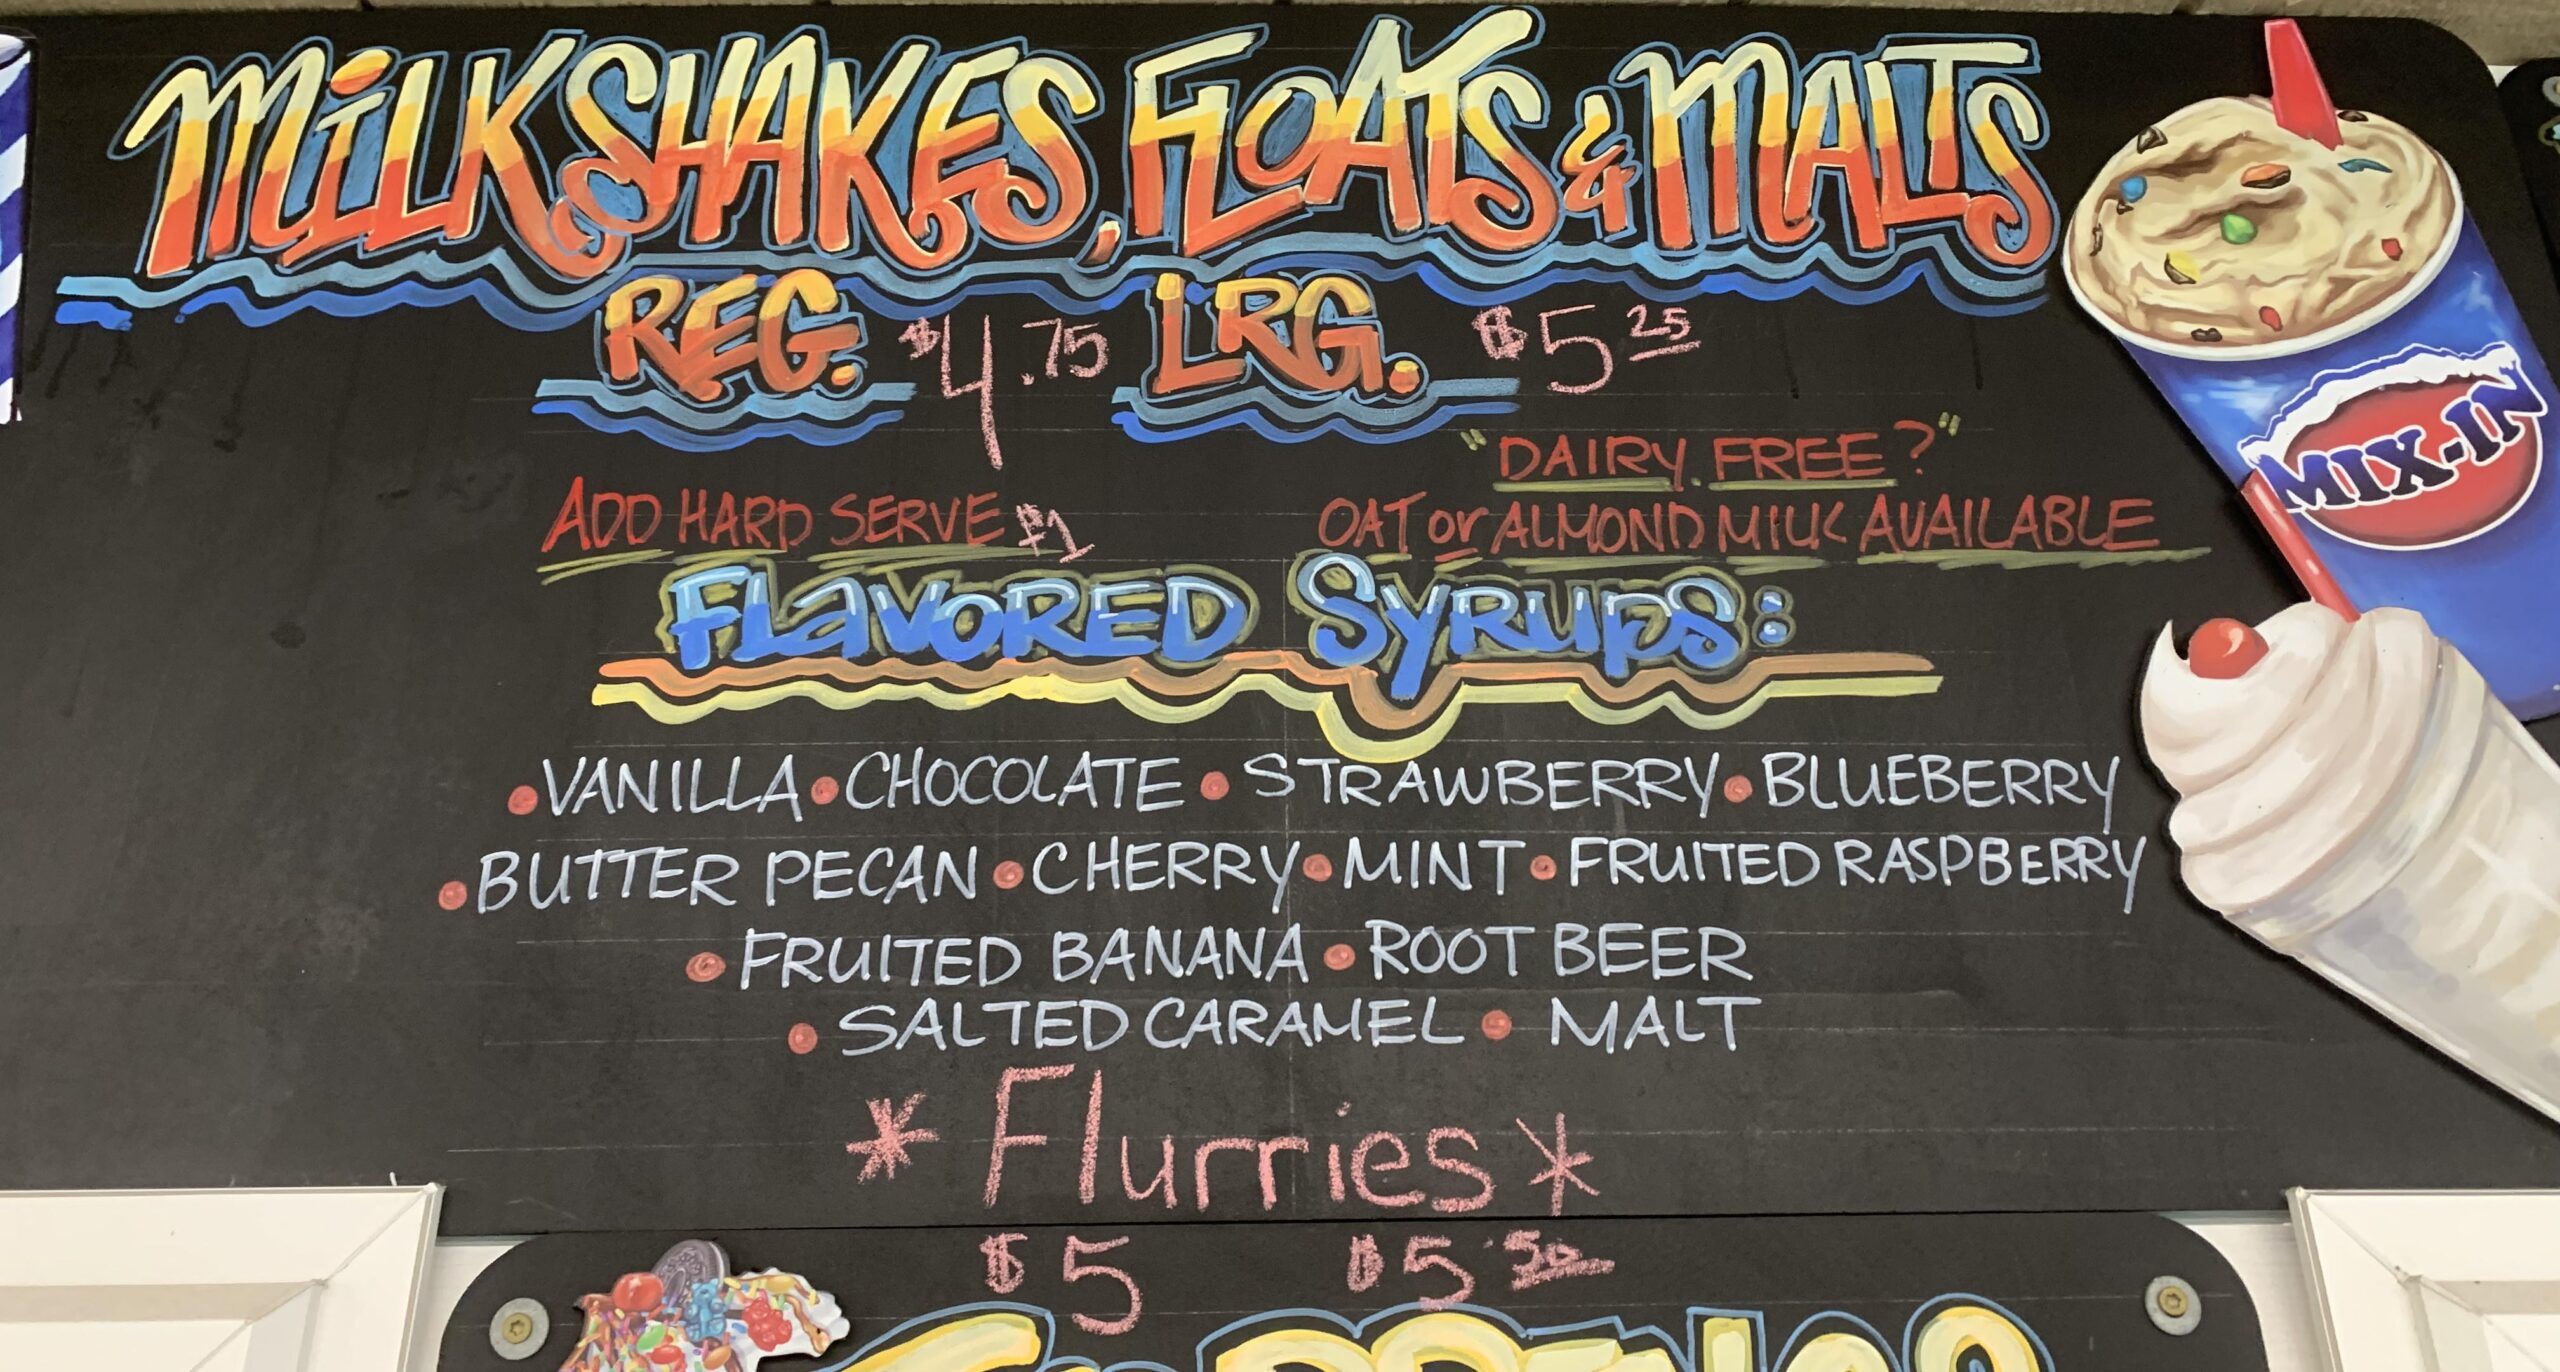 MILKSHAKES, FLOATS & MALTS
REG. $4.75 LRG. $5 25
"DAIRY FREE?"
ADD HARD SERVE $1
OAT or ALMOND MILK AVAILABLE
FLAVORED SYRUPS:
• VANILLA • CHOCOLATE • STRAWBERRY • BLUEBERRY
• BUTTER PECAN • CHERRY • MINT • FRUITED RASPBERRY
• FRUITED BANANA • ROOT BEER
• SALTED CARAMEL • MALT
* Flurries *
$5 $5 50
MIX-IN